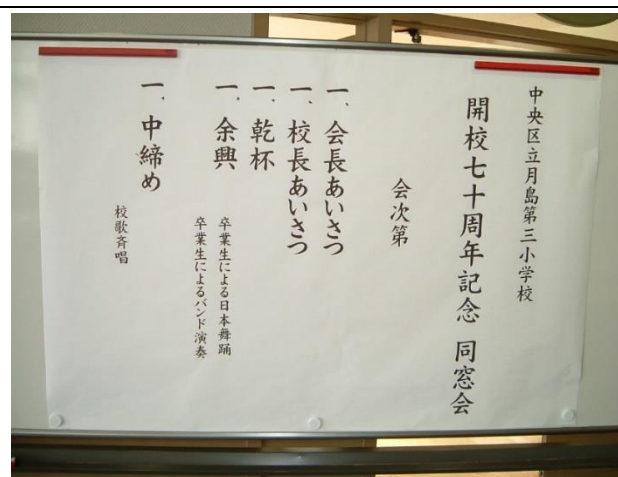 中央区立月島第三小学校
開校七十周年記念 同窓会
会次第
一、会長あいさつ
一、校長あいさつ
一、乾杯
一、余興
卒業生による日本舞踊
卒業生によるバンド演奏
一、中締め
校歌斉唱